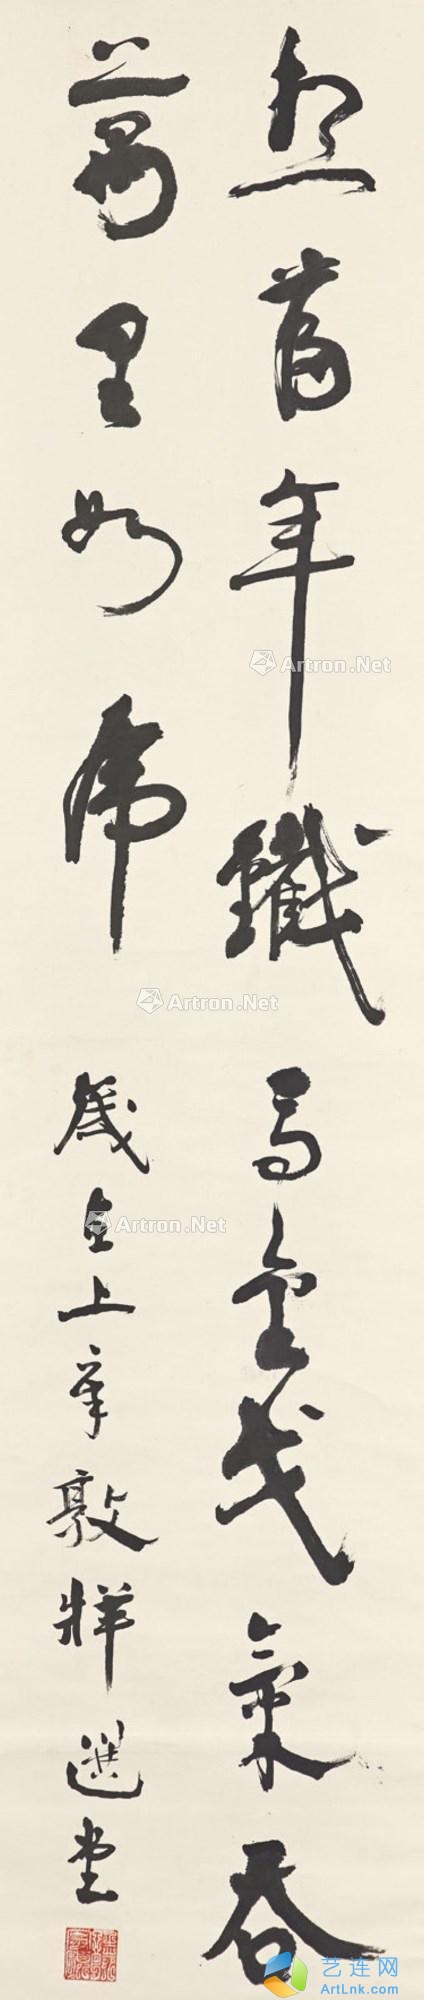 想當年鐵馬金戈氣吞
萬里如虎
歲在上章敦牂 選堂
Artron.Net
Artron.Net
Artron.Net
艺连网
ArtLnk.com